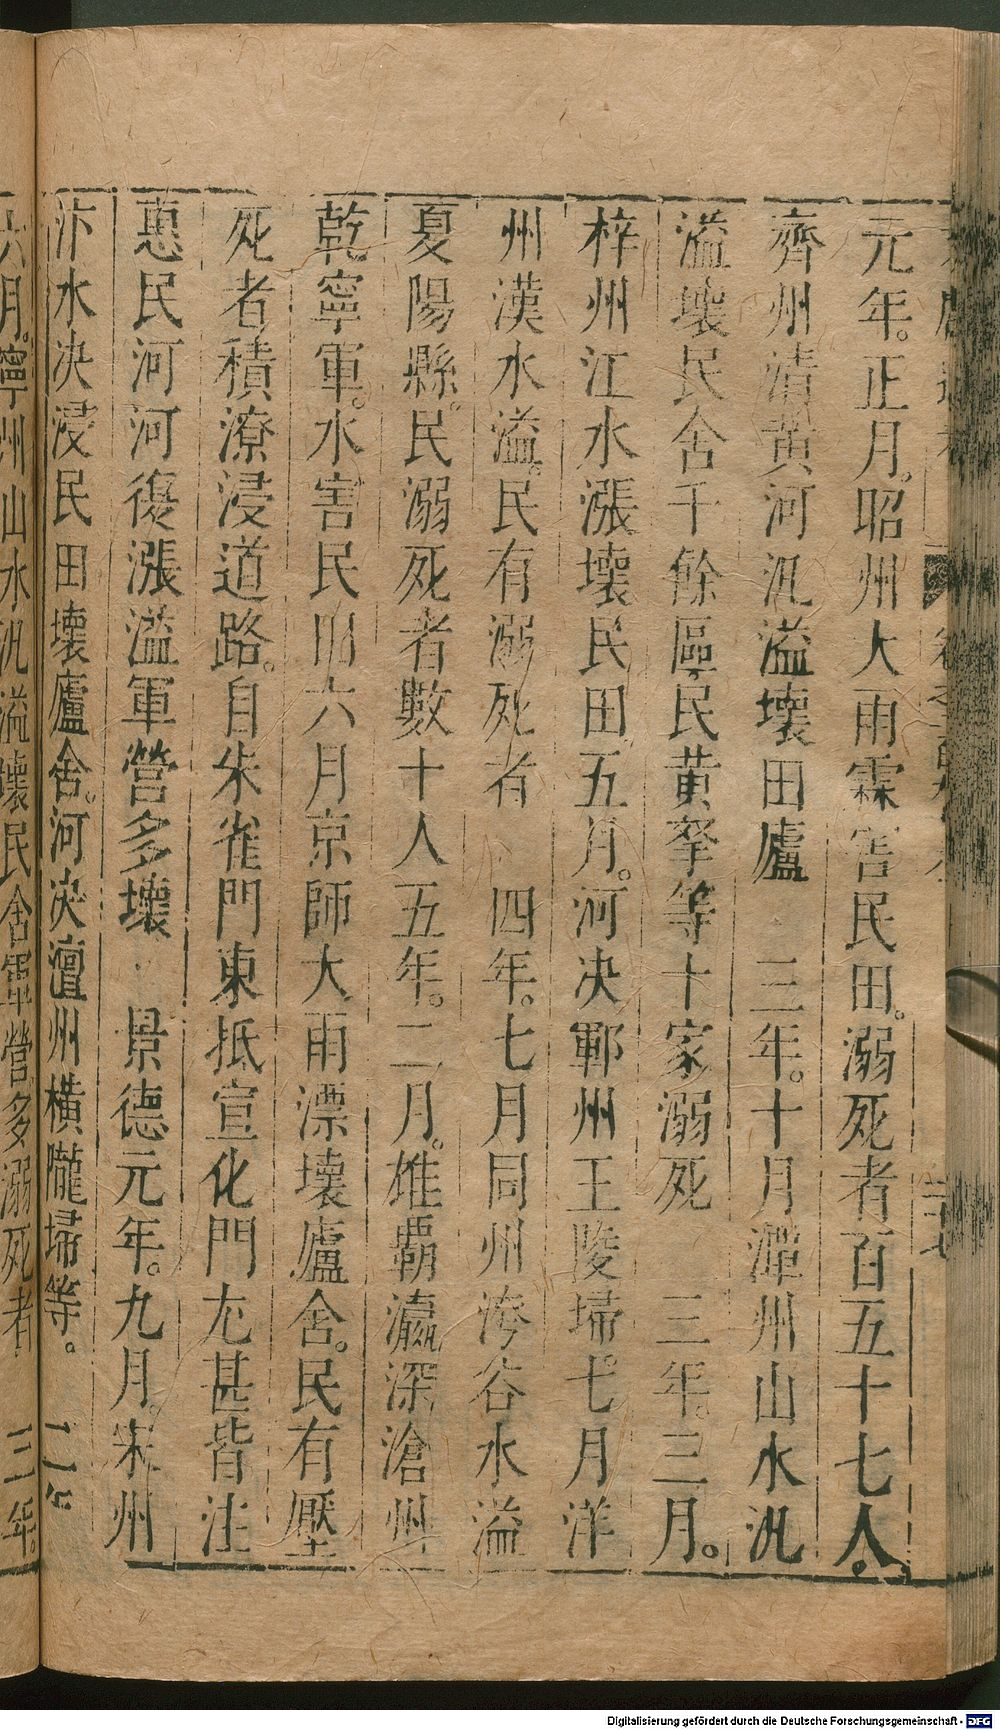 元年。正月。昭州大雨霖害民田。溺死者百五十七人。
齊州清黄河汎溢壞田廬　二年。十月潭州山水汎
溢壞民舍千餘區民黄拏等十家溺死　三年。三月。
梓州江水漲壞民田五月。河決鄆州王陵埽。七月洋
州漢水溢。民有溺死者　四年。七月同州洿谷水溢
夏陽縣。民溺死者數十人五年。二月。雄霸瀛深滄州
乾寧軍。水害民田六月京師大雨漂壞廬舍。民有壓
死者積潦浸道路。自朱雀門東抵宣化門尤甚皆注
惠民河河復漲溢軍營多壞　景德元年。九月。宋州
汴水決浸民田壞廬舍。河決澶州橫隴埽等。　二年
六月。寧州山水汎溢壞民舍軍營多溺死者　三年。
Digitalisierung gefördert durch die Deutsche Forschungsgemeinschaft - DFG